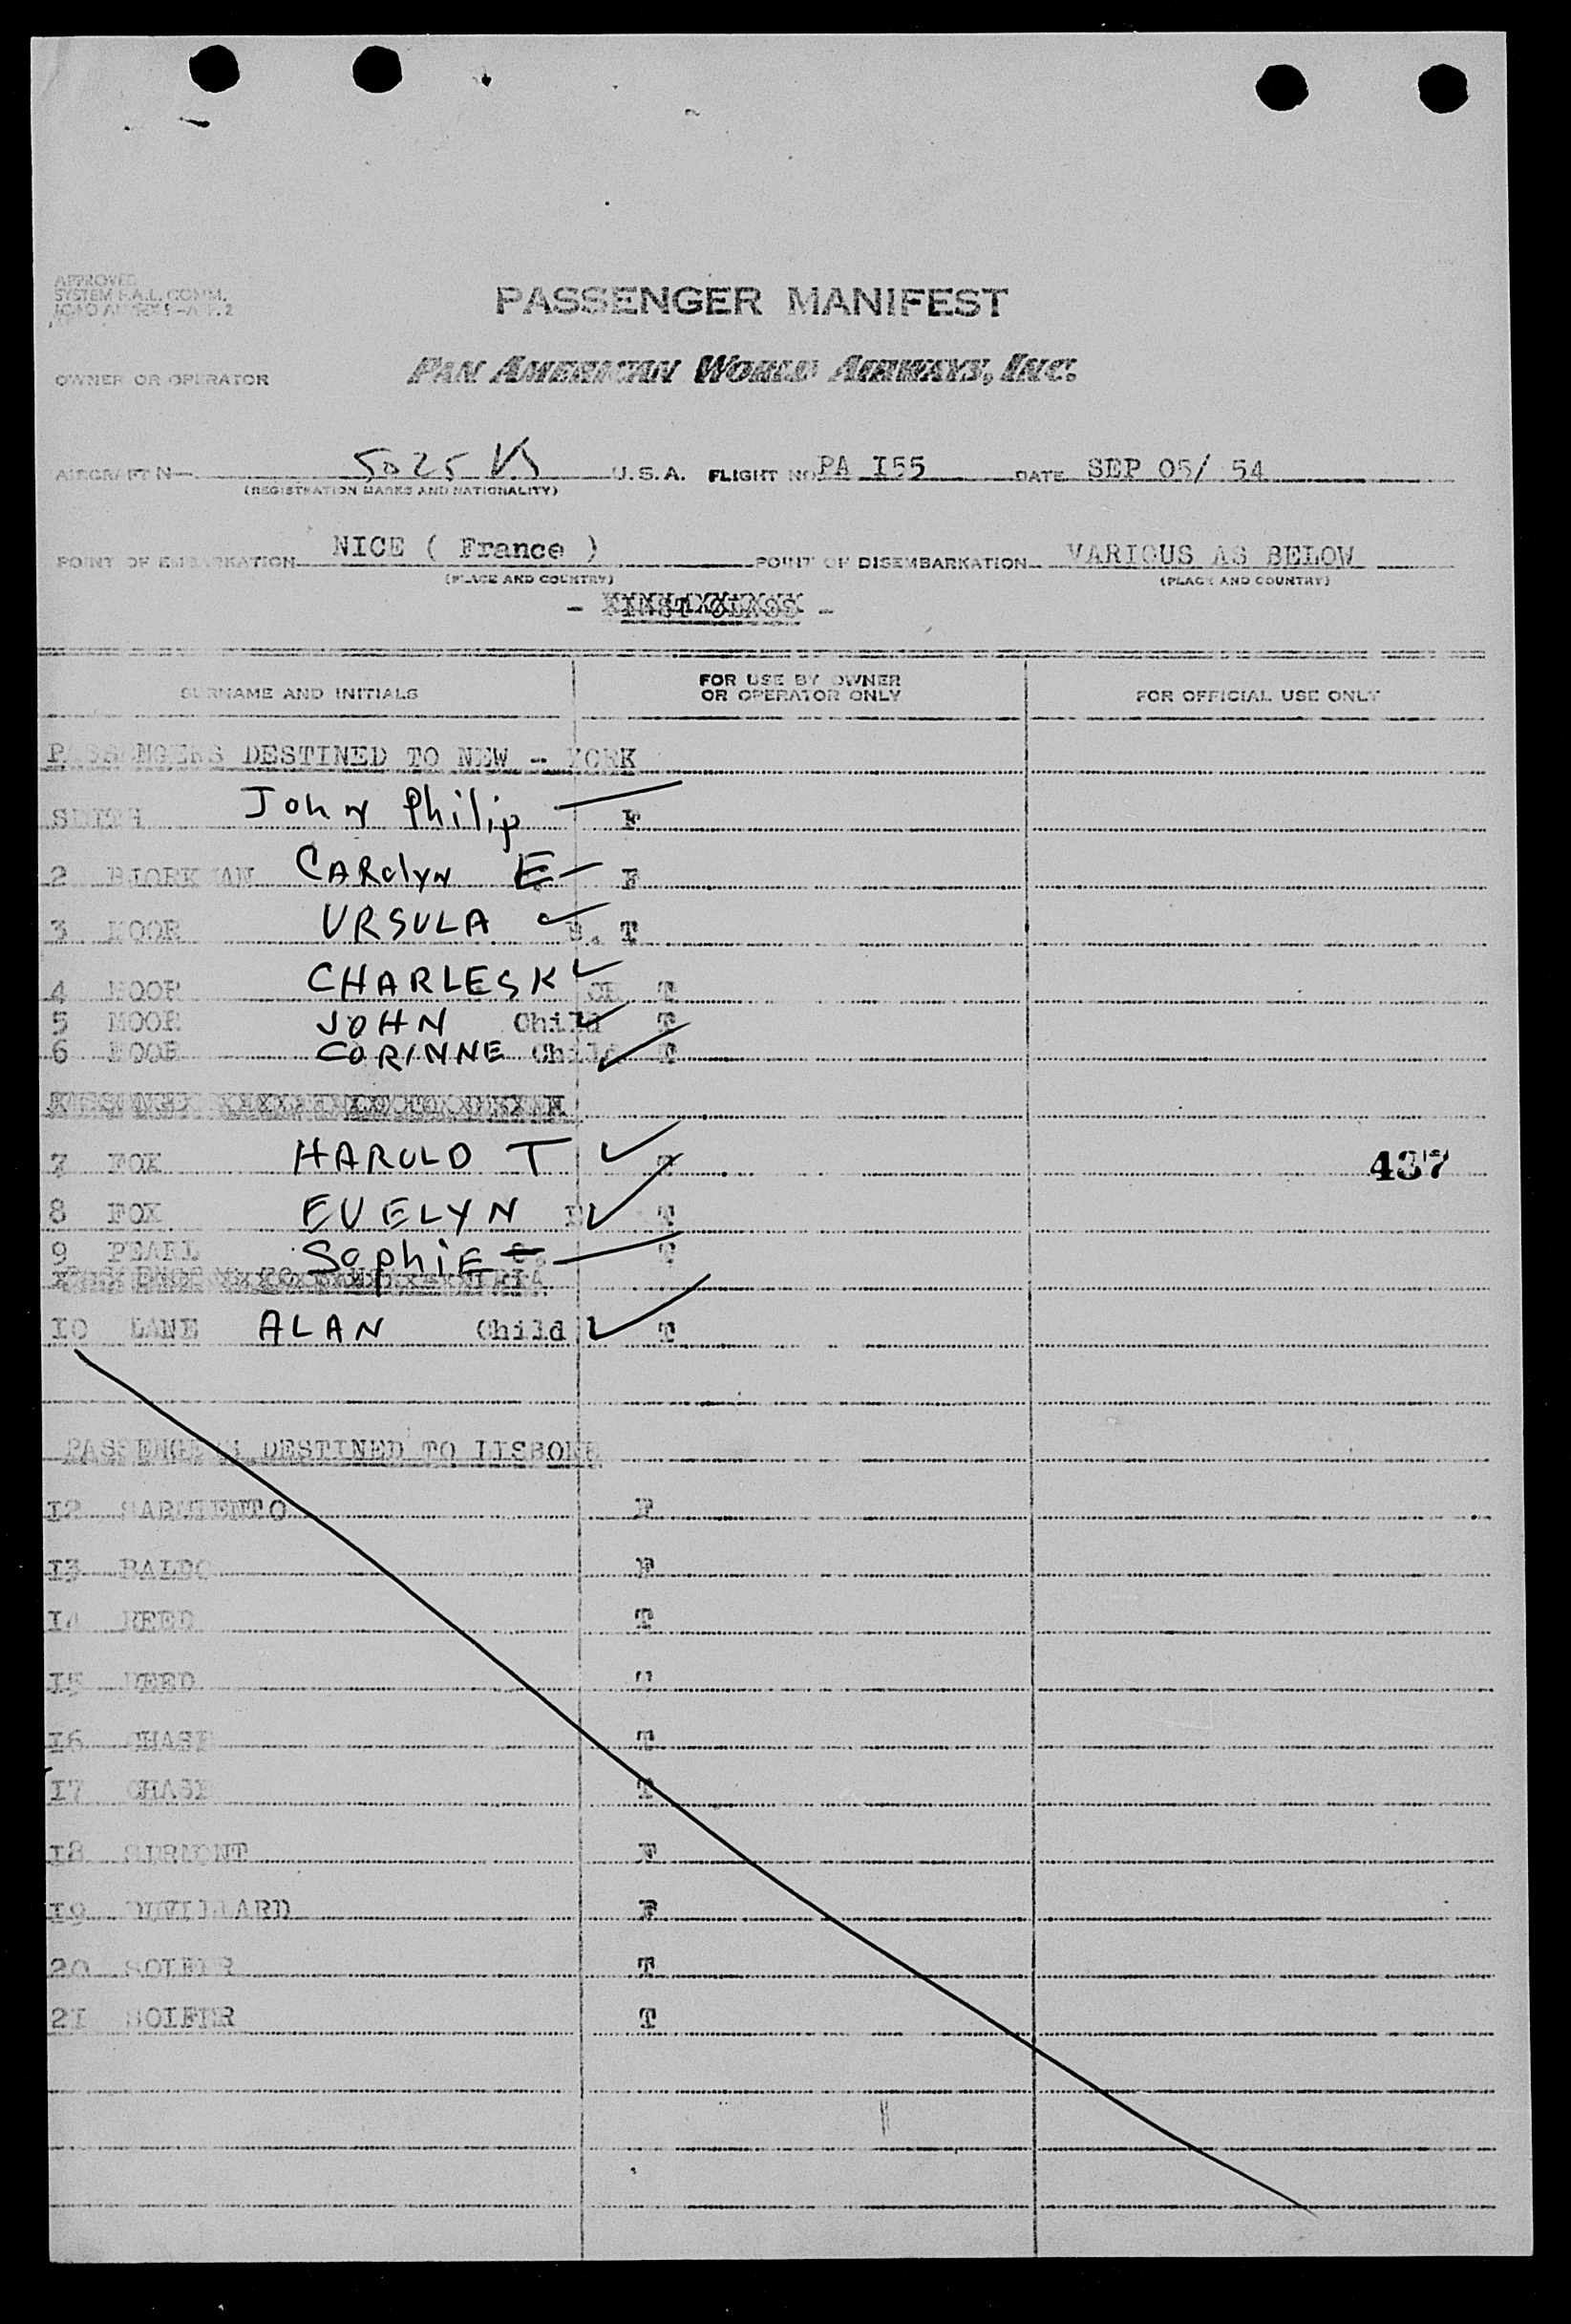 APPROVED
SYSTEM F.A.L. COMM.
PASSENGER MANIFEST
OWNER OR OPERATOR PAN AMERICAN WORLD AIRWAYS, INC.
AIRCRAFT N— 5025 U.S.A. FLIGHT NO PA I55 DATE SEP 05/ 54
(REGISTRATION MARKS AND NATIONALITY)
POINT OF EMBARKATION NICE ( France ) POINT OF DISEMBARKATION VARIOUS AS BELOW
(PLACE AND COUNTRY) (PLACE AND COUNTRY)
SURNAME AND INITIALS FOR USE BY OWNER OR OPERATOR ONLY FOR OFFICIAL USE ONLY
PASSENGERS DESTINED TO NEW - YORK
SMITH John Philip F
2 BJORKMAN CAROlyN E F
3 MOOR URSULA T
4 MOOR CHARLES K T
5 MOOR JOHN Child T
6 MOOR CORINNE Child T
7 FOX HAROLD T T 437
8 FOX EVELYN T
9 PEARL SophiE T
I0 LANE ALAN Child T
PASSENGERS DESTINED TO LISBONE
I2 SARMIENTO F
I3 F
I4 REED T
I5 REED
I6 CHASE T
I7 CHASE T
I8 F
I9 F
20 SOIFER T
2I SOIFER T